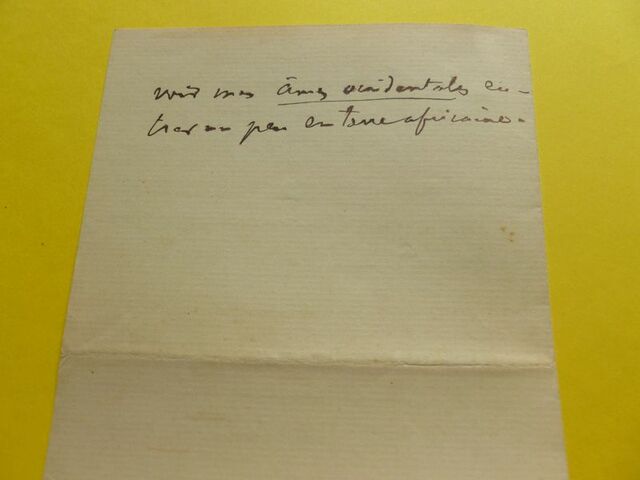 voir mes âmes occidentales en-
trer un peu en terre africaine.